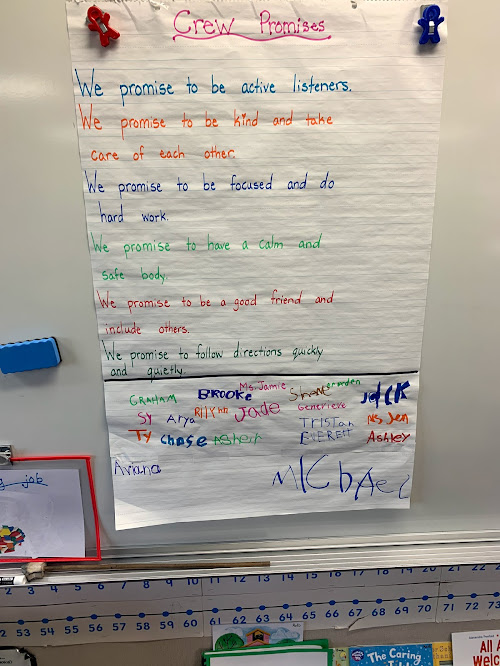 Crew Promises
We promise to be active listeners.
We promise to be kind and take
care of each other.
We promise to be focused and do
hard work.
We promise to have a calm and
safe body.
We promise to be a good friend and
include others.
We promise to follow directions quickly
and quietly.
GRAHAM BROOKE Ms. Jamie Shane Jack
Sy Arya Jade Genevieve Ms. Jen
Ty Chase Tristan EVEREtt Ashley
Aviana MICbAel
job
1 2 3 4 5 6 7 8 9 10 11 12 13 14 15 16 17 18 19 20 21 22
52 53 54 55 56 57 58 59 60 61 62 63 64 65 66 67 68 69 70 71 72 73
The Caring
All A
welc